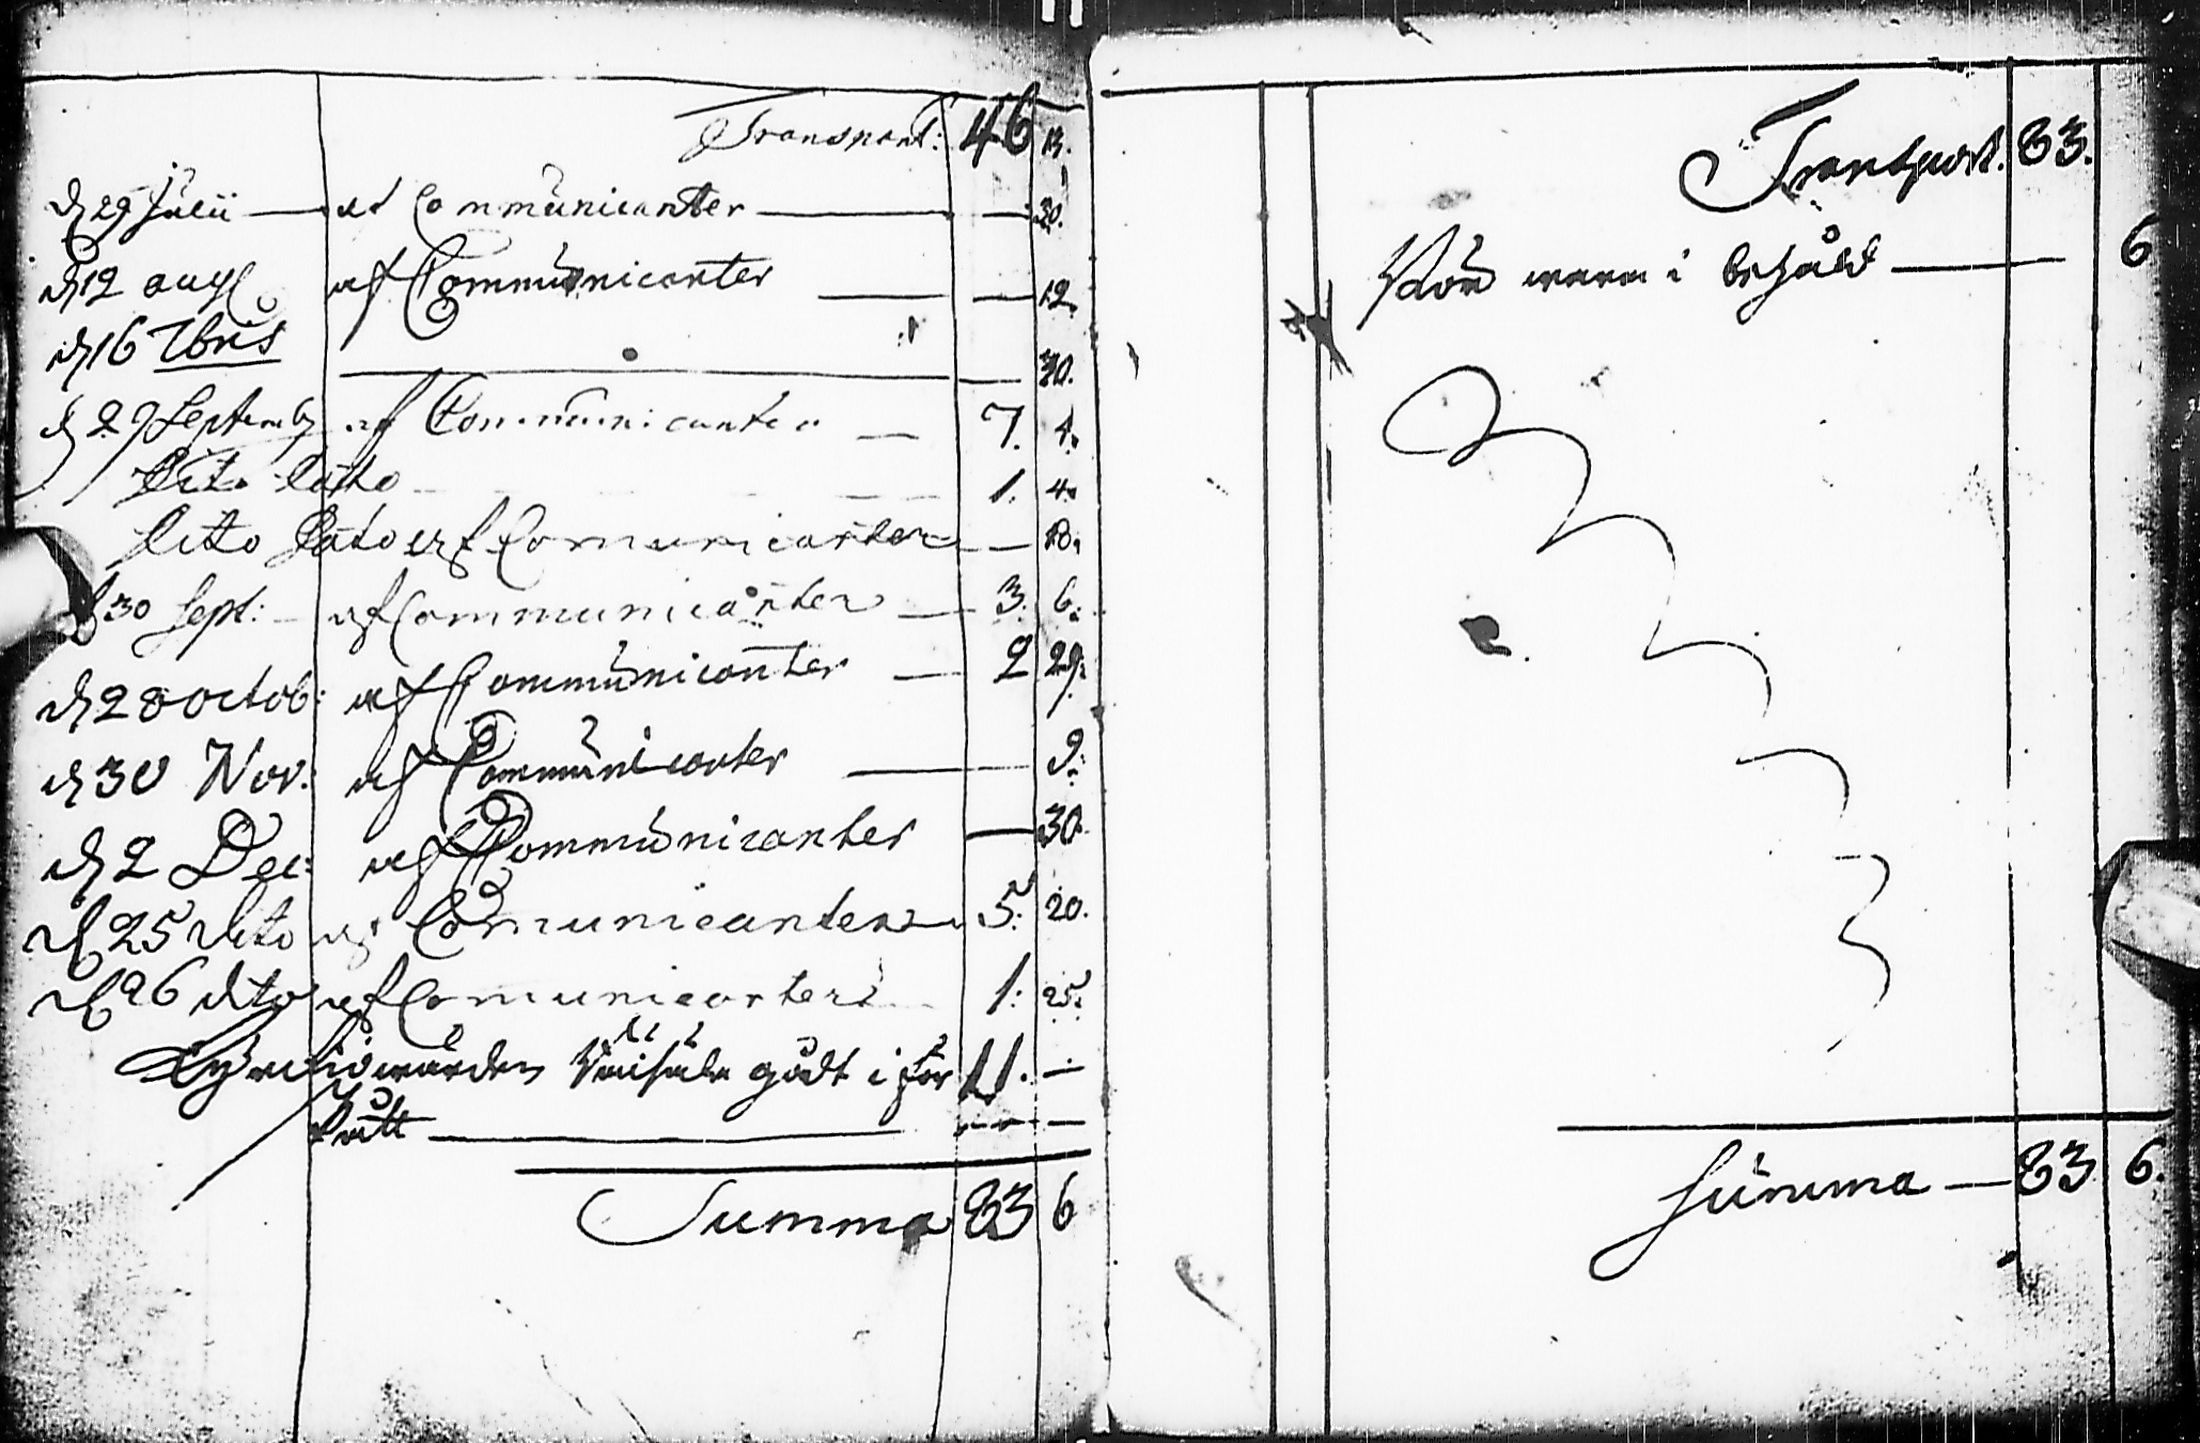 Transport: 46 13.
d 29 Julii — af Communicanter — — 30.
d 12 augt af Communicanter — — 12.
d 16 7bris — — 30.
d 29 Septemb af Communicanter — 7. 4.
Dito Dato 1. 4.
Dito Dato af Comunicanter — 18.
d 30 Sept: — af Communicanter — 3. 6.
d 28 octob: af Communicanter — 2 29.
d 30 Nov: af Communicanter — 9.
d 2 Dec: af Communicanter — 30.
d 25 dito af Comunicanter 5: 20.
d 26 dito af Comunicanter 1: 25.
godt i för 11. —
—
Summa 83 6
Transport. 83.
i behåld — 6
Summa — 83 6.